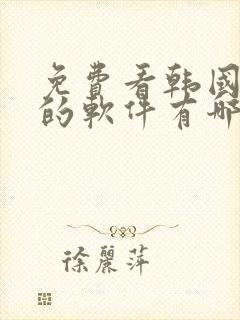 免費看韩國
的軟件有哪
徐麗萍